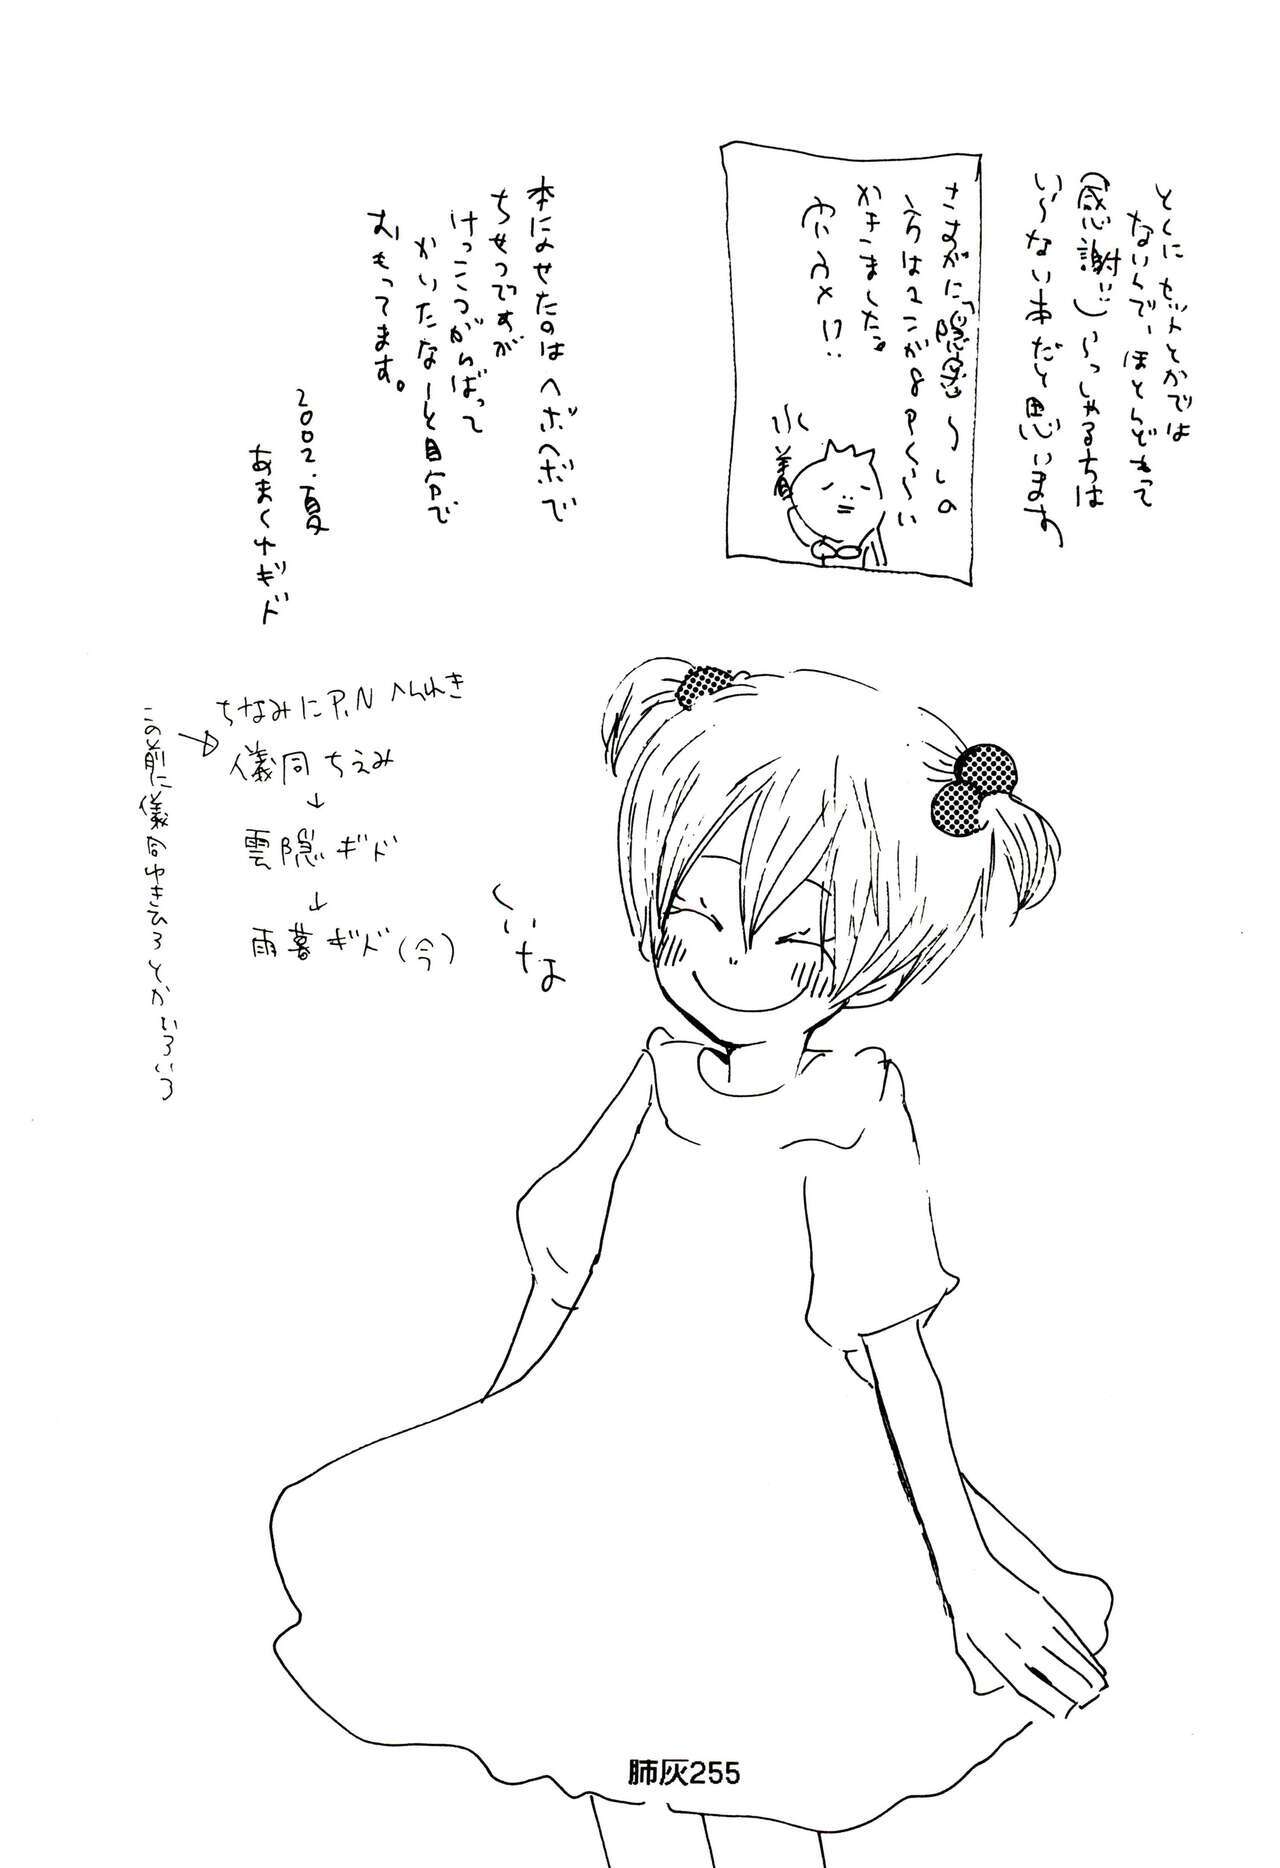 とくにセットとかでは
ないんで、ほとんどもって
(感謝!!)いらっしゃる方は
い〜ない本だと思います
さすがに「隠密〜」の
方は2コが8Pくらい
かきこみました。
水着
本によせたのはヘボヘボで
ちせつですが
けっこうがんばって
かいたなーと自分で
おもってます。
2002.夏
あまくれギド
ちなみにP.Nへんれき
儀同ちえみ
↓
雲隠ギド
↓
雨暮ギド(今)
この前に儀同ゆきひろとかいろいろ
くいな
肺灰255